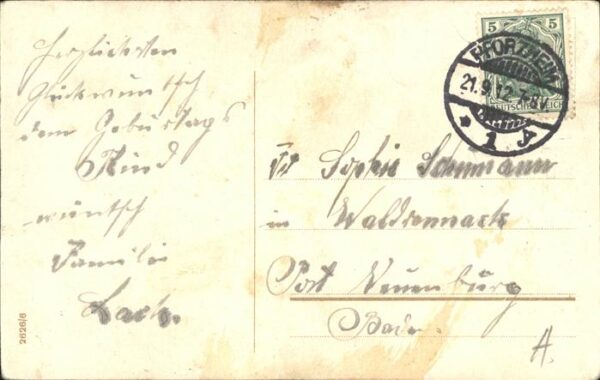 Herzlichsten
Glückwunsch
dem Geburtags
Kind
wünsch
Familie
5 5
PFORZHEIM
21.9.12.7-8V.
* 1 *
DEUTSCHES REICH
Sophie Schumann
in Waldrennach
Post Neuenburg
Baden.
A.
2626/6